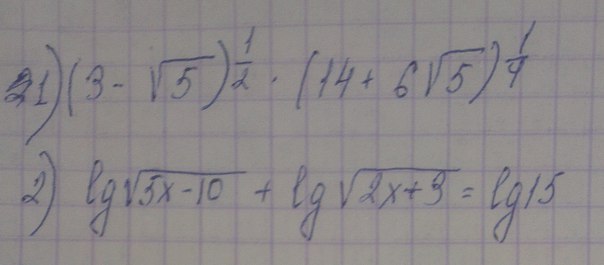 21) (3 - √5)^(1/2) · (14 + 6√5)^(1/4)
2) lg√(5x-10) + lg√(2x+3) = lg15